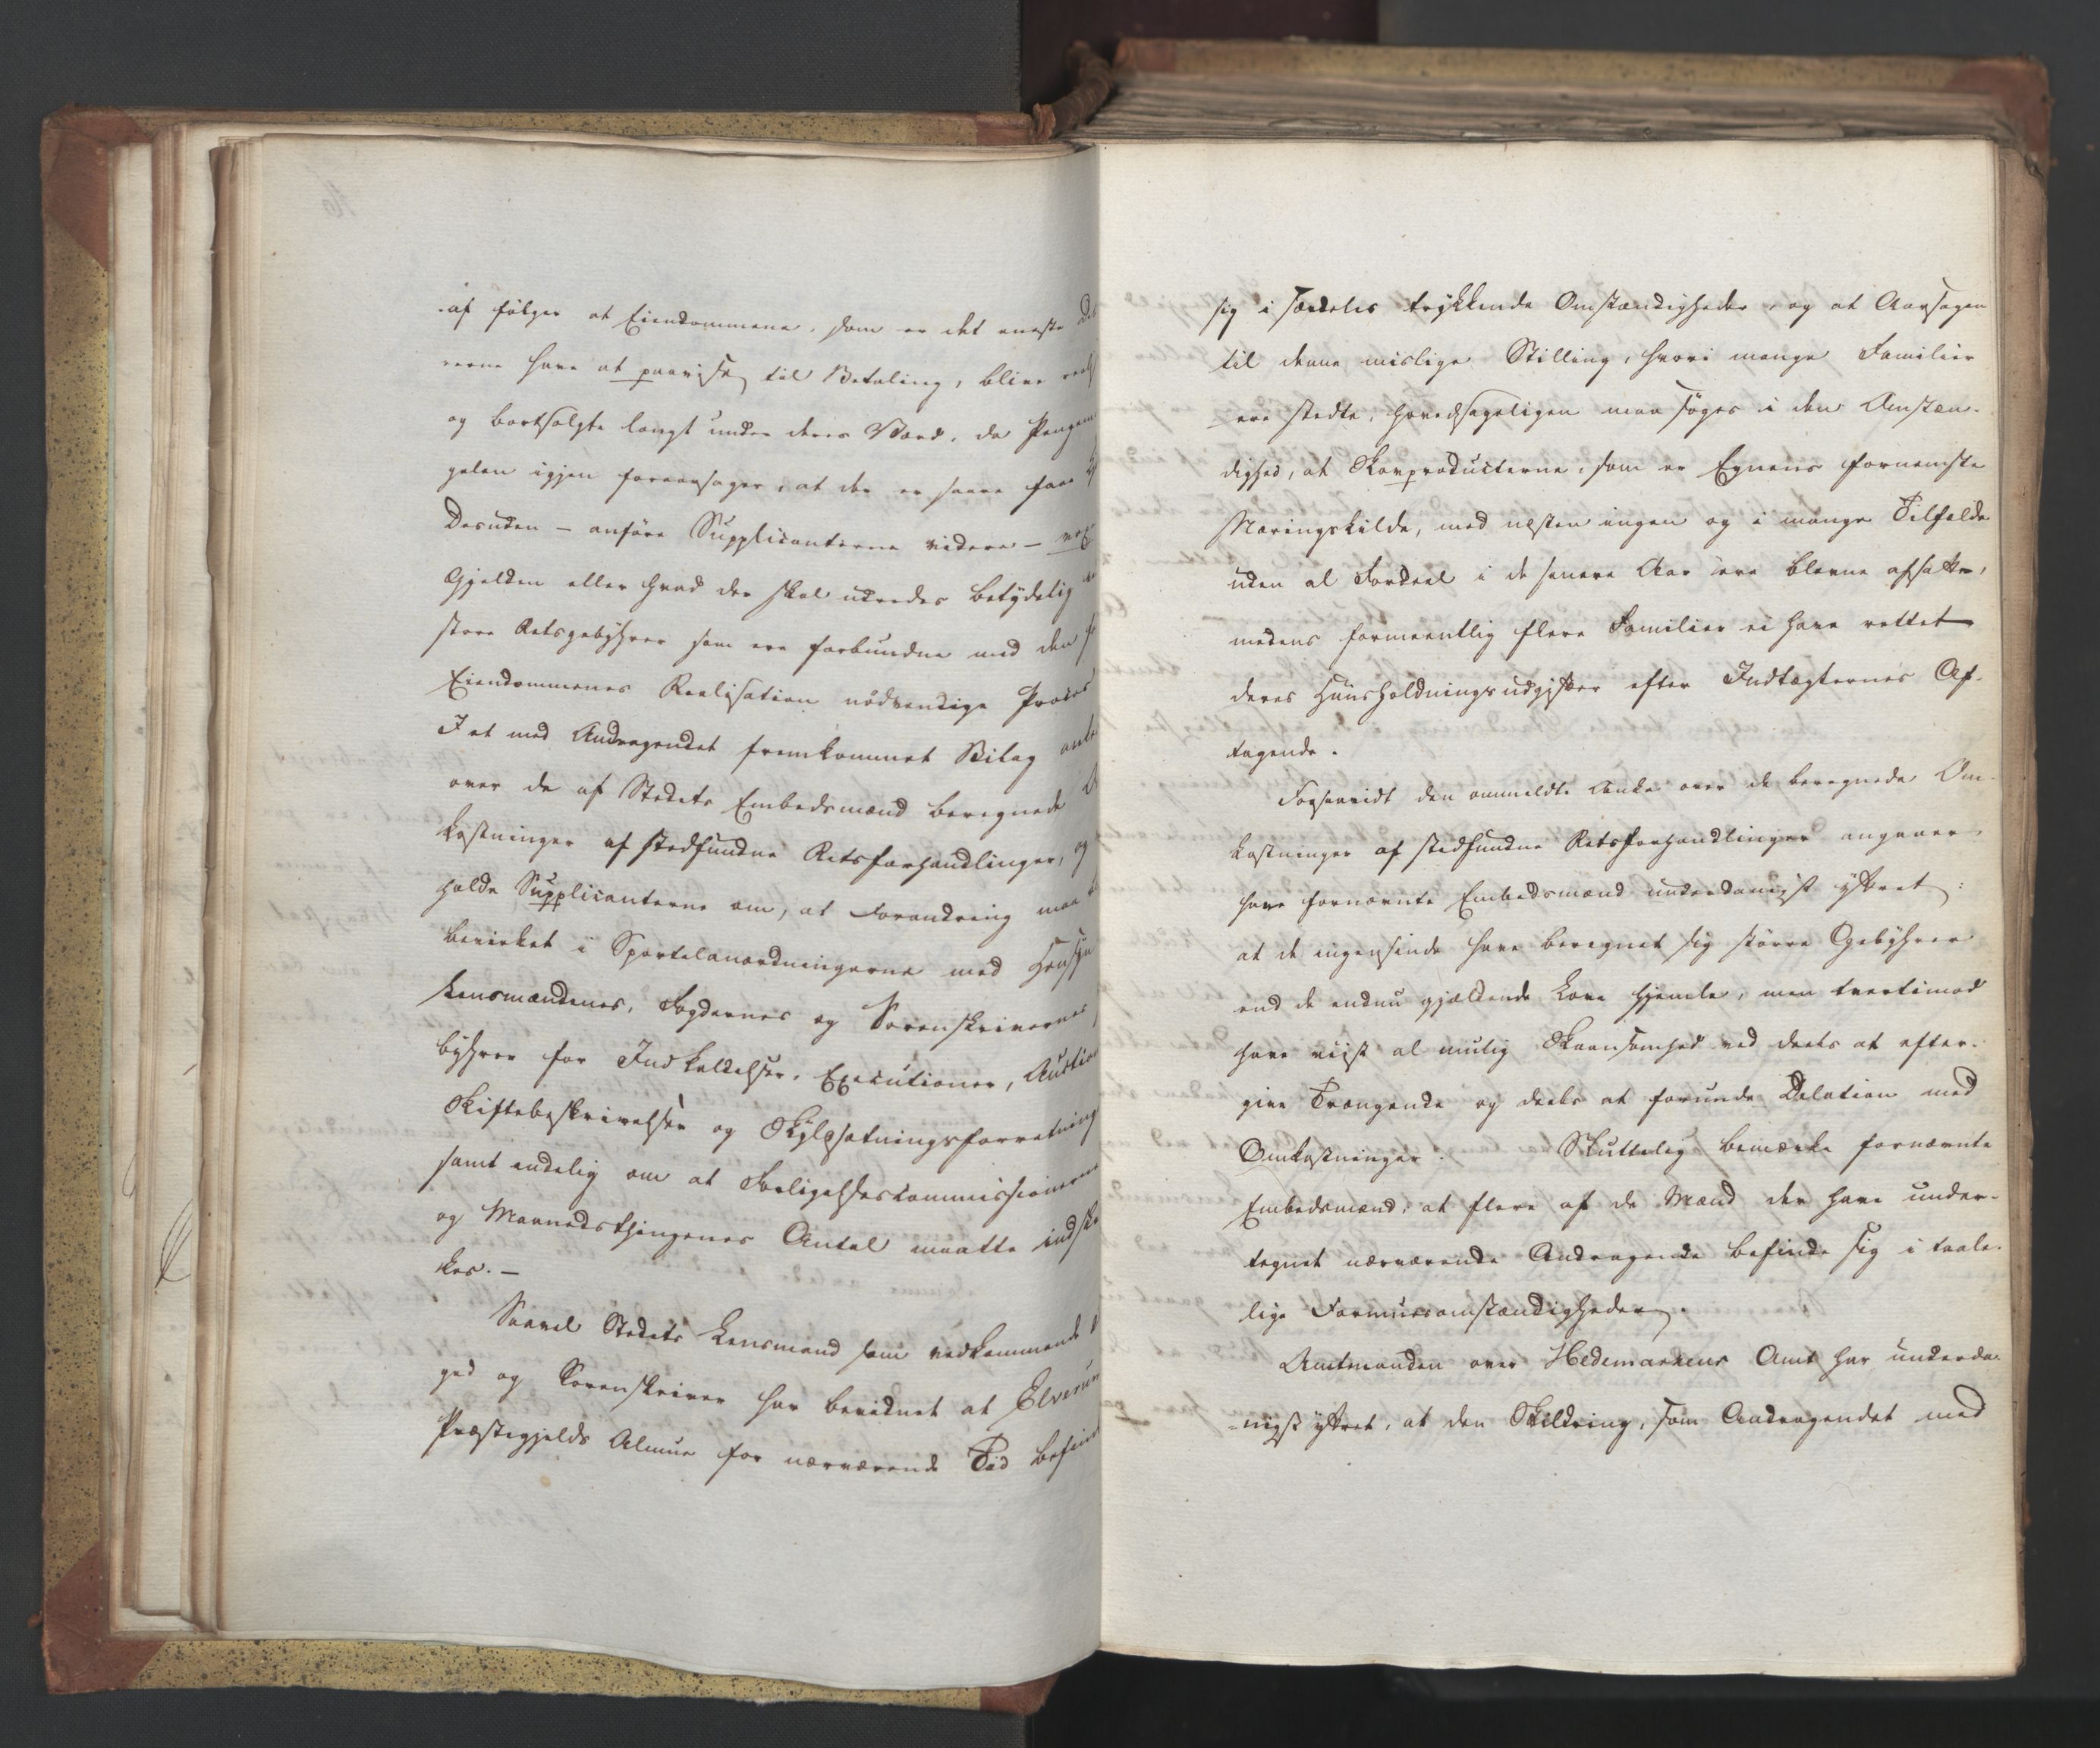 af følger at Eiendommene, som er det eneste
rerne have at paavise til Betaling, blive
og bortsolgte langt under deres Værd, da Pengem
gelen igjen foraarsager, at der er saare faa
Desuden – anføre Supplicanterne videre –
Gjelden eller hvad der skal udredes betydelig
store Retsgebyhrer som ere forbundne med den
Eiendommenes Realisation nødvendige Proces
I et med Andragendet fremkommet Bilag
over de af Stedets Embedsmænd beregnede
kostninger af stedfundne Retsforhandlinger, og
holde Supplicanterne om, at Forandring maa
bevirket i Sportelanordningerne med Hensyn
Lensmændenes, Fogdernes og Sorenskrivernes
byhrer for Indkaldelser, Executioner, Auctio
Skiftebeskrivelser og Skyldsætningsforretning
samt endelig om at Forligelsescommissionerne
og Maanedsthingenes Antal maatte indskr
kes. –
Saavel Stedets Lensmand som vedkommende
ged og Sorenskriver har bevidnet at Elverum
Præstegjelds Almue for nærværende Tid befind
sig i særdeles trykkende Omstændigheder, og at Aarsagen
til denne mislige Stilling, hvori mange Familier
ere stedte, hovedsageligen maa søges i den Omstæn-
dighed, at Skovproducterne, som er Egnens fornemste
Næringskilde, med næsten ingen og i mange Tilfælde
uden al Fordeel i de senere Aar ere blevne afsatte,
medens formeentlig flere Familier ei have rettet
deres Huusholdningsudgifter efter Indtægternes Af-
tagende.
Forsaavidt den anmeldte Anke over de beregnede Om-
kostninger af stedfundne Retsforhandlinger angaaer,
have fornævnte Embedsmænd underdanigst yttret:
at de ingensinde have beregnet sig større Gebyhrer
end de endnu gjældende Love hjemle, men tvertimod
have viist al mulig Skaansomhed ved deels at efter-
give Trængende og deels at forunde Dilation med
Omkostninger. Sluttelig bemærke fornævnte
Embedsmænd, at flere af de Mænd der have under-
tegnet nærværende Andragende befinde sig i taale-
lige Formuesomstændigheder.
Amtmanden over Hedemarkens Amt har underda-
nigst yttret, at den Skildring, som Andragendet med